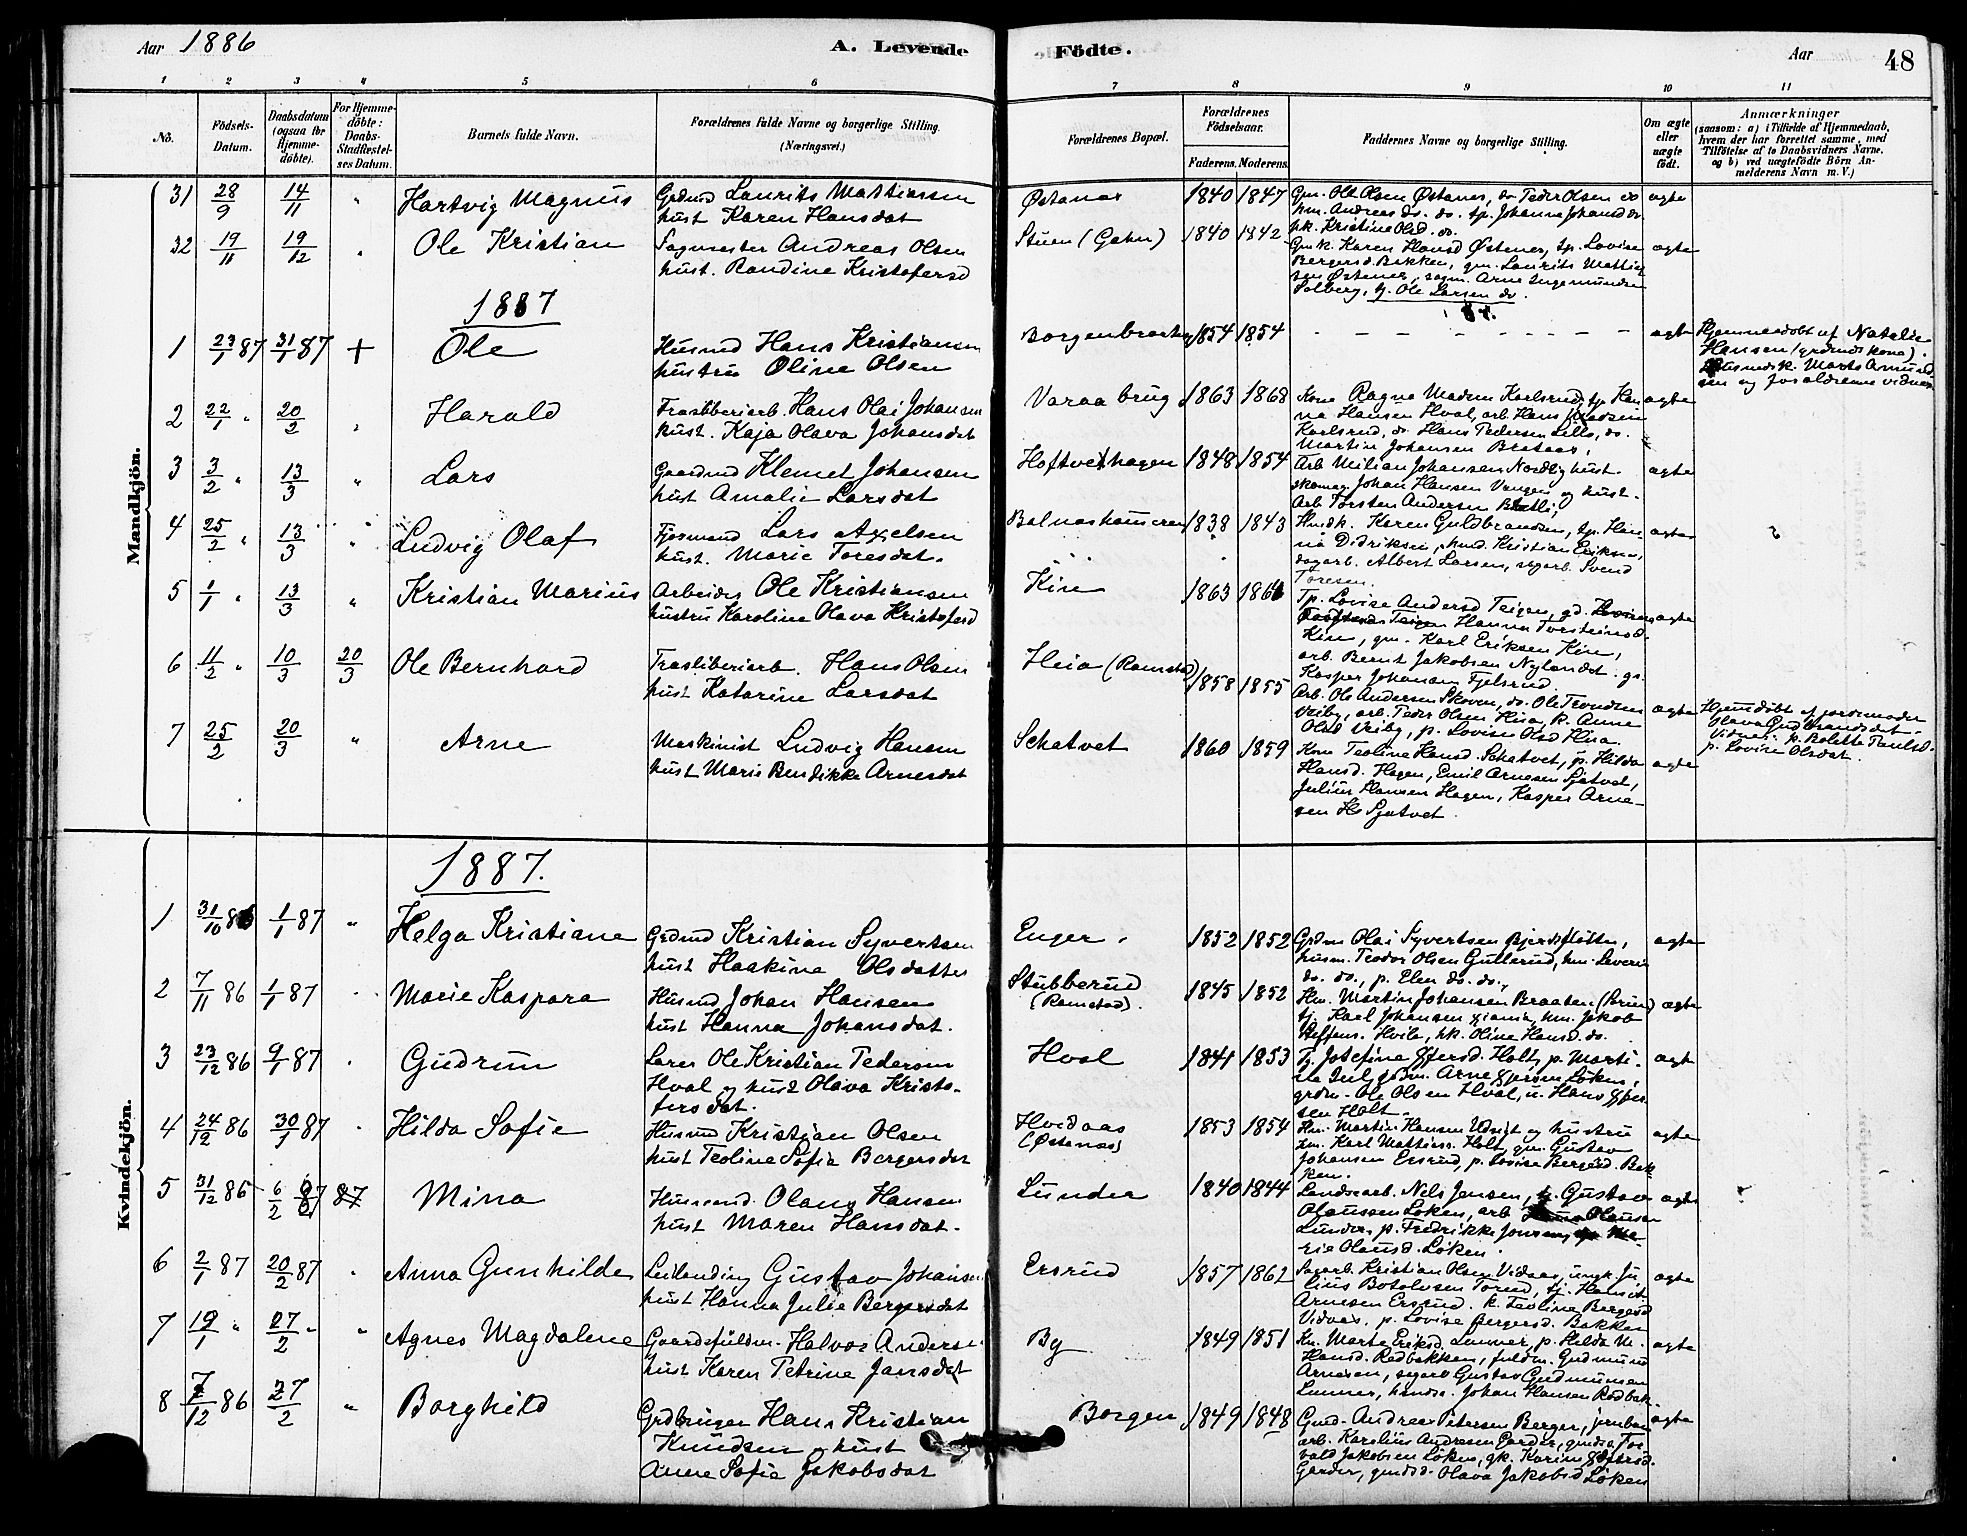 Aar 1886 A. Levende Födte. Aar 48
1 2 3 4 5 6 7 8 9 10 11
No. Födsels-Datum. Daabsdatum (ogsaa for Hjemme-döbte). For Hjemme-döbte: Daabs-Stadfæstel-ses Datum. Barnets fulde Navn. Forældrenes fulde Navne og borgerlige Stilling. (Næringsvei.) Forældrenes Bopæl. Forældrenes Födselsaar. Faderens. Moderens. Faddernes Navne og borgerlige Stilling. Om ægte eller uægte födt. Anmærkninger
(saasom: a) i Tilfælde af Hjemmedaab, hvem der har forrettet samme, med Tilföielse af to Daabsvidners Navne, og b) ved uægtefödte Börn An-melderens Navn m. V.)
Mandkjön.
31 28/9 14/11 " Hartvig Magnus Grdmd Laurits Mattiassen
hust Karen Hansdat Østenas 1840 1847 Gm. Ole Olsen Østenas, do Peder Olsen do ægte
hm. Andreas do. do. tp. Johanna Johansd do.
pk. Kristine Olsd. do.
32 19/11 19/12 " Ole Kristian Sagmester Andreas Olsen
hust. Randine Kristofersd Stuen (Gahn) 1840 1842 Gmk. Karen Hansd Østenes, tp. Lovise ægte
Bergersd. Bakken, gm. Laurits Mattias
sen Østenes, sagm. Arne Ingemundsen
Solberg, tj. Ole Larsen do.
1887
87.
1 23/1 87 31/1 87 + Ole Husmd Hans Kristiansen
hustru Oline Olsen Borgenbraaten 1854 1854 - - - - - - - - ægte Hjemmedøbt af Natalie
Hansen (grdmds kone).
Husmdsk. Marte Amund
sen og forældrene vidner
2 22/1 " 20/2 " Harald Træsliberiarb. Hans Olai Johansen
hust. Kaja Olava Johansdat Varaa brug 1863 1868 Kone Ragna Madsen Karlsrud, tp. Han ægte
na Hansen Hval, arb. Hans Madsen
Karlsrud, do. Hans Pedersen Lille, do.
Martin Johansen Brataas.
3 3/2 " 13/3 " Lars Gaardmd Klemet Johansen
hust Amalie Larsdat Hoftvethagen 1848 1854 Arb. Milian Johansen Nordby hust. ægte
skomag. Johan Hansen Vangen og hust.
Arb Torsten Andersen
4 25/2 " 13/3 " Ludvig Olaf Fjøsmand Lars Axelsen
hust. Marie Toresdat. Bolnaskameren 1838 1843 Hmdk. Karen Guldbrandsen, tp. Han ægte
na Didriksen, hmd. Kristian Eriksen,
dagarb. Albert Larsen, sagarb. Svend
Toresen.
5 1/1 " 13/3 " Kristian Marius Arbeider Ole Kristiansen
hustru Karoline Olava Kristofersd Kim 1863 Tp. Lovise Andersd Teigen, gd. ægte
Teigen Hanna Torsteinsd.
Kim, gm. Karl Eriksen Kim,
arb. Bernt Jakobsen Nylandet. gs.
Kasper Johansen Fjelsrud.
6 11/2 " 10/3 20/3 Ole Bernhard Træsliberiarb. Hans Olsen
hust Katarine Larsdat Heia (Ramstad) 1858 1855 Arb. Ole Andersen Skoven, do. Ole Trondsen ægte
Veiby, arb. Peder Olsen Heia, k. Anne
Olsd Veiby, p. Lovise Olsd Heia. Hjemdøbt af jordmoder
Olava Gudbrandsdat.
Vidner: k. Bolette Paulsd.
p. Lovise Olsdat.
7 25/2 20/3 " Arne Maskinist Ludvig Hansen
hust Marie Bendikke Arnesdat Schatvet 1860 1859 Kone Teoline Hansd. Schatvet, p. Hilda ægte
Hansd. Hagen, Emil Arnesen Sjatvet,
Julius Hansen Hagen, Kasper Arne-
sen Sjatvet.
Kvindekjön.
1887.
1 31/10 86 1/1 87 " Helga Kristiane Grdmd Kristian Syvertsen
hust Haakine Olsdatter Enger. 1852 1852 Grdm Olai Syvertsen Bjerdsfløtta, ægte
husm. Teodor Olsen Gullerud, hm. Severin
do. do., p. Elen do. do.,
2 7/11 86 1/1 87 " Marie Kaspara Husmd Johan Hansen
hust Hanna Johansdat. Stubberud
(Ramstad). 1845 1852 Hm. Martin Johansen Braaten (Berun) ægte
tj. Karl Johansen Xiania, hm. Jakob
Steffens. Hvile, hk. Oline Hansd. do.
3 23/12 86 9/1 87 " Gudrun Lærer Ole Kristian Pedersen
Hval og hust Olava Kristo-
fersdat. Hval 1841 1853 Tj. Josefine Gjersd. Holt, p. Marti- ægte
ne Arne Gjersen Løken,
grdm. Ole Olsen Hval, u. Hans Gjer
sen Holt.
4 24/12 86 30/1 87 " Hilda Sofie Husmd Kristjan Olsen
hust Teoline Sofie Bergersdat Hvidaas
(Østenas) 1853 1854 Hm. Martin Hansen og hustru ægte
hm. Karl Mattiass. Holt, gm. Gustav
Johansen Ersrud, p. Lovise Bergersd. Bak-
ken.
5 31/12 86 6/2 87 Mina Husmand. Olaus Hansen
hust Maren Hansdat. Lunder 1840 1844 Landsarb. Nils Jensen, tj. Gustav ægte
Olaussen Løken, arb Olausen
Lunder, p. Fredrikke Jonsen, Ma-
rie Olausd. Løken.
6 2/1 87 20/2 87 " Anna Gunhilde Leilending Gustav Johansen
hust Hanna Julie Bergersdat Ersrud 1857 1862 Sagarb. Kristian Olsen Vidaas, ungk Ju- ægte
lius Botolvsen Torud, tj.
Arnesen Ersrud. k. Teoline Bergersd
Vidaas, p. Lovise Bergersd. Bakken
7 19/1 " 27/2 " " Agnes Magdalene Gaardsfuldm. Halvor Andersen
hust Karen Petrine Jansdat By 1849 1851 Kn. Marte Eriksd. Lunner, p. Hilda M. ægte
Hansd. Rødbakken, fuldm. Gudmund
Arnesen, Gustav Gudmunsen
Lunner, Johan Hansen Rødbak.
8 7/12 86 27/2 " Borghild Grdbruger Hans Kristian
Knudsen og hust
Anne Sofie Jakobsdat Borgen 1849 1848 Gmd. Andreas Petersen Berger, jernban ægte
arb. Karelius Andresen Garder, gmdsø Tor
vald Jakobsen Løken, gk. Karine Gjersd.
Garder, gmdsd. Olava Jakobsd Løken